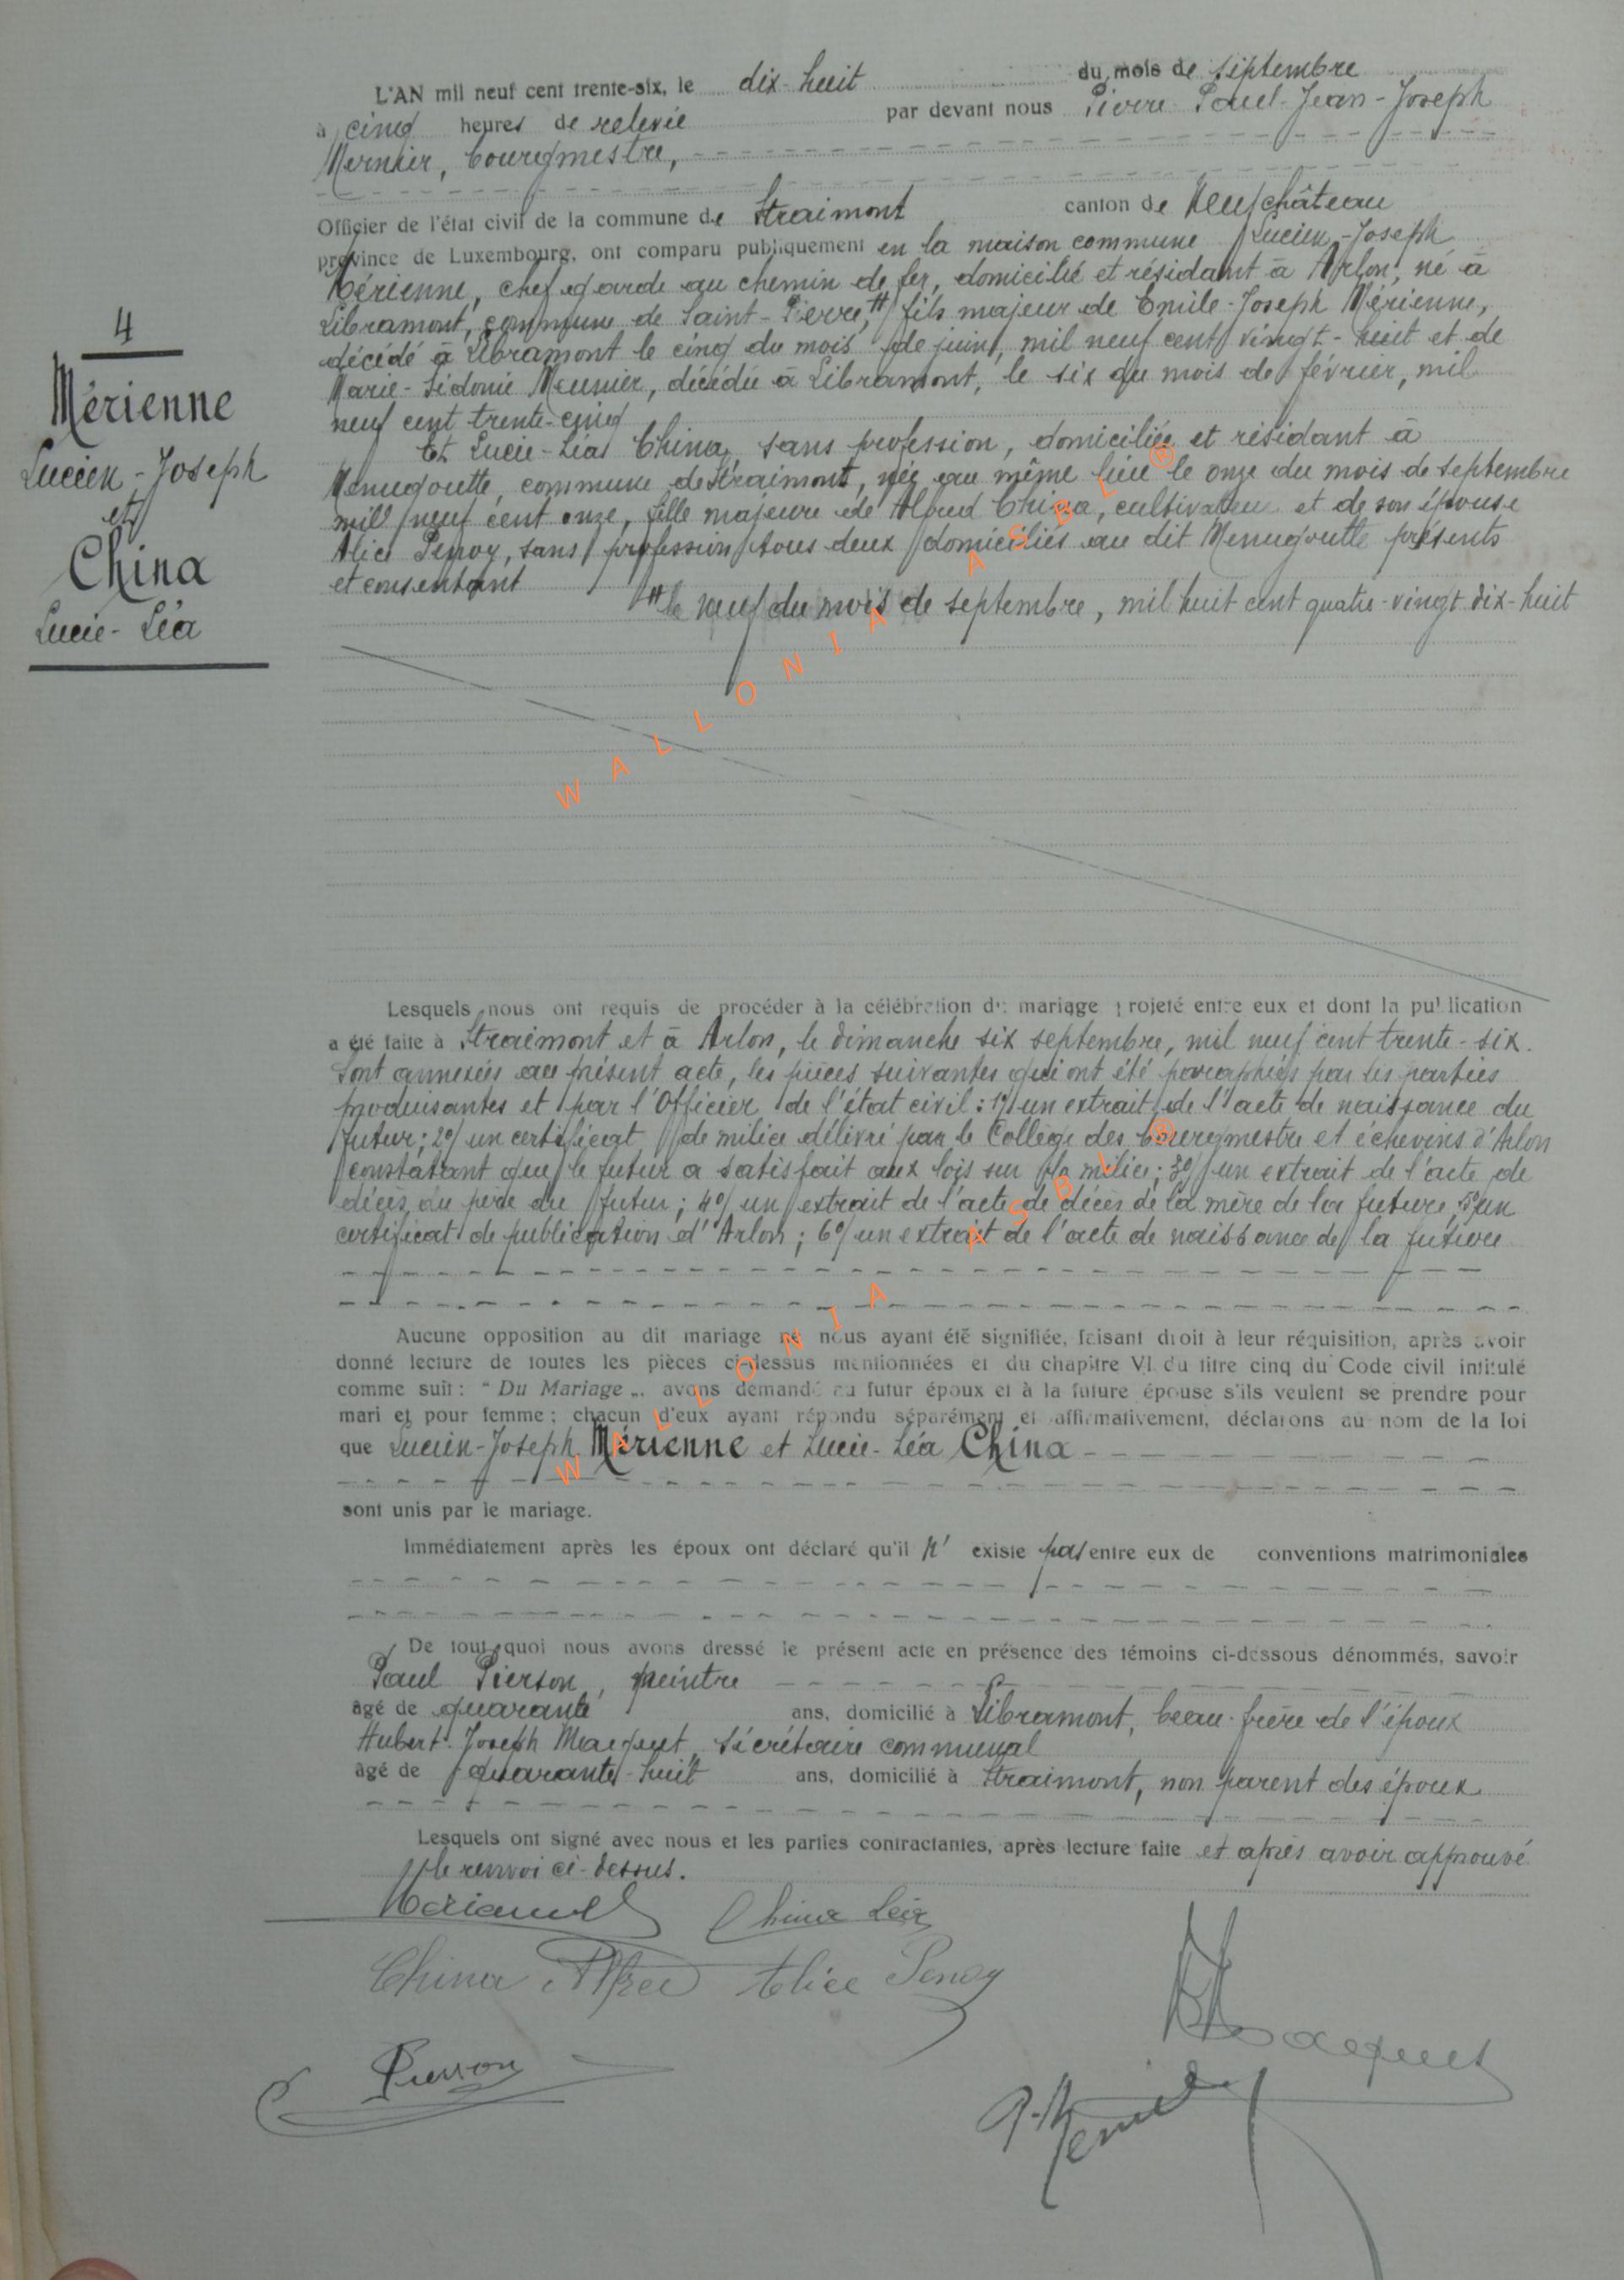 4
Mérienne
Lucien-Joseph
et
China
Lucie-Léa
L'AN mil neuf cent trente-six, le dix-huit du mois de septembre
à cinq heures de relevée par devant nous Pierre-Paul-Jean-Joseph
Mernier, bourgmestre,
Officier de l'état civil de la commune de Straimont canton de Neufchâteau
province de Luxembourg, ont comparu publiquement en la maison commune Lucien-Joseph
Mérienne, chef garde au chemin de fer, domicilié et résidant à Arlon, né à
Libramont, commune de Saint-Pierre, # fils majeur de Emile-Joseph Mérienne,
décédé à Libramont le cinq du mois de juin, mil neuf cent vingt-huit et de
Marie-Sidonie Meunier, décédée à Libramont, le six du mois de février, mil
neuf cent trente-cinq
Et Lucie-Léa China, sans profession, domiciliée et résidant à
Menugoutte, commune de Straimont, née au même lieu le onze du mois de septembre
mil neuf cent onze, fille majeure de Alfred China, cultivateur et de son épouse
Alice Penoy, sans profession tous deux domiciliés au dit Menugoutte présents
et consentant
# le neuf du mois de septembre, mil huit cent quatre-vingt dix-huit
WALLONIA ASBL ®
Lesquels nous ont requis de procéder à la célébration du mariage projeté entre eux et dont la publication
a été faite à Straimont et à Arlon, le dimanche six septembre, mil neuf cent trente-six.
Sont annexées au présent acte, les pièces suivantes qui ont été paraphées par les parties
produisantes et par l'Officier de l'état civil : 1°/ un extrait de l'acte de naissance du
futur; 2°/ un certificat de milice délivré par le Collège des bourgmestre et échevins d'Arlon
constatant que le futur a satisfait aux lois sur la milice; 3°/ un extrait de l'acte de
décès du père du futur; 4°/ un extrait de l'acte de décès de la mère de la future; 5° un
certificat de publication d'Arlon; 6°/ un extrait de l'acte de naissance de la future
WALLONIA ASBL ®
Aucune opposition au dit mariage ne nous ayant été signifiée, faisant droit à leur réquisition, après avoir
donné lecture de toutes les pièces ci-dessus mentionnées et du chapitre VI du titre cinq du Code civil intitulé
comme suit : " Du Mariage ", avons demandé au futur époux et à la future épouse s'ils veulent se prendre pour
mari et pour femme ; chacun d'eux ayant répondu séparément et affirmativement, déclarons au nom de la loi
que Lucien-Joseph Mérienne et Lucie-Léa China
sont unis par le mariage.
Immédiatement après les époux ont déclaré qu'il n' existe pas entre eux de conventions matrimoniales
De tout quoi nous avons dressé le présent acte en présence des témoins ci-dessous dénommés, savoir
Paul Pierson, peintre
âgé de quarante ans, domicilié à Libramont, beau-frère de l'époux
Hubert-Joseph Maquet, secrétaire communal
âgé de quarante-huit ans, domicilié à Straimont, non parent des époux
Lesquels ont signé avec nous et les parties contractantes, après lecture faite et après avoir approuvé
le renvoi ci-dessus.
China Léa
China Alfred Alice Penoy
Pierson